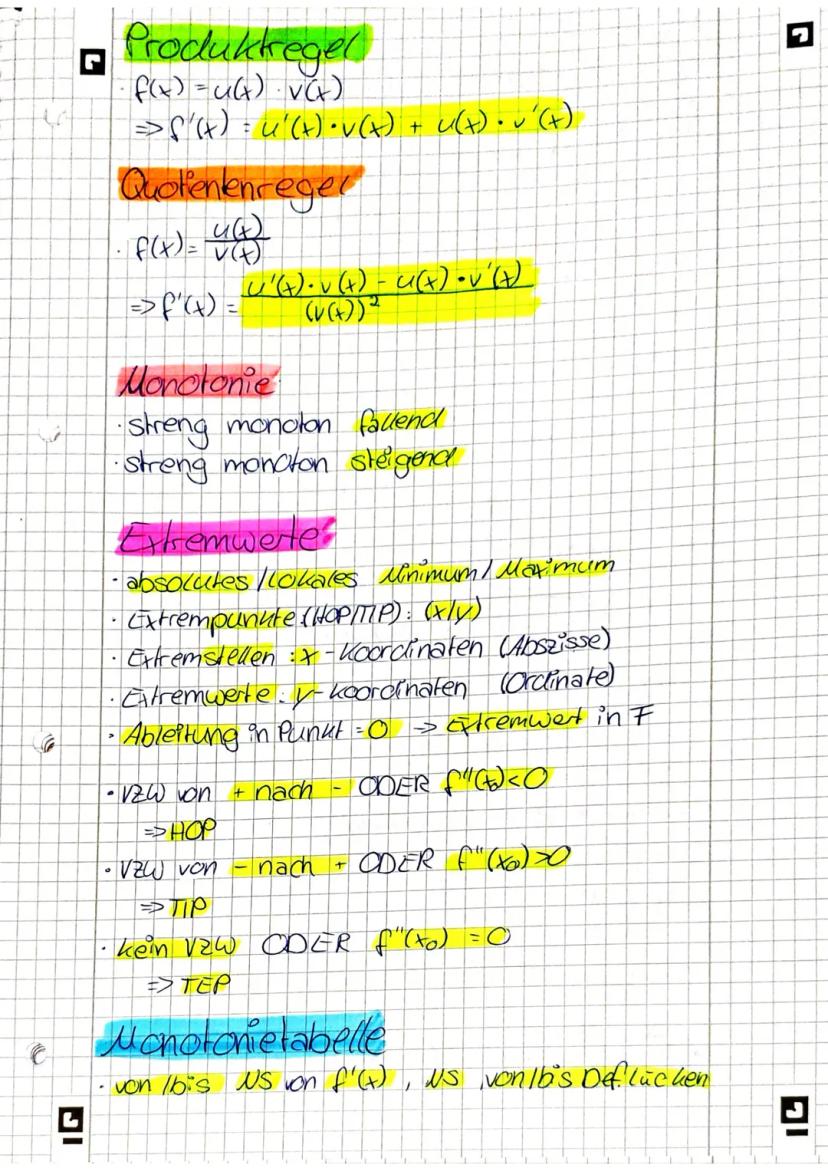 Produktregel
· f(x) = u(x) · v(x)
=> f'(x) = u'(x) · v(x) + u(x) · v'(x)
Quotientenregel
· f(x) = u(x)/v(x)
=> f'(x) = u'(x) · v(x) - u(x) · v'(x) / (v(x))²
Monotonie
· streng monoton fallend
· streng monoton steigend
Extremwerte
· absolutes / lokales Minimum / Maximum
· Extrempunkte (HOP/TIP): (x/y)
· Extremstellen : x - Koordinaten (Abszisse)
· Extremwerte : y - Koordinaten (Ordinate)
· Ableitung in Punkt = 0 -> Extremwert in F
· VZW von + nach - ODER f''(x₀) < 0
=> HOP
· VZW von - nach + ODER f''(x₀) > 0
=> TIP
· kein VZW ODER f''(x₀) = 0
=> TEP
Monotonietabelle
· von / bis NS von f'(x) , NS , von / bis Def.lücken